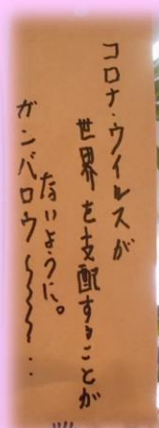 コロナ・ウイルスが
世界を支配することが
ないように。
ガンバロウ〜〜〜・・